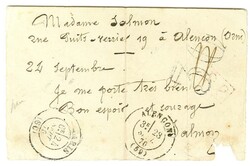 Madame Salmon
rue Puits-Verrier 19 à Alençon Orne
24 Septembre
Je me porte très bien
Bon espoir et courage
Salmon
ALENÇON
28
70